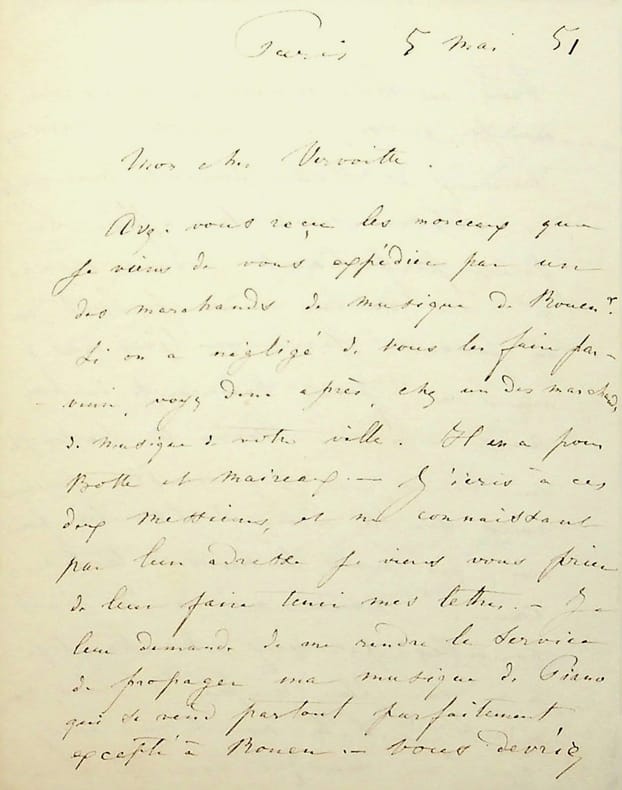 Paris 5 mai 51
Mon cher Vervoitte.
Avez-vous reçu les morceaux que
je viens de vous expédier par un
des marchands de musique de Rouen?
Si on a négligé de vous les faire par-
venir, voyez donc après, chez un des marchands
de musique de votre ville. Il en a pour
et - J'écris à ces
deux messieurs, et ne connaissant
pas leur adresse je viens vous prier
de leur faire tenir mes lettres. - Je
leur demande de me rendre le service
de propager ma musique de Piano
qui se vend partout parfaitement
excepté à Rouen. - Vous devriez